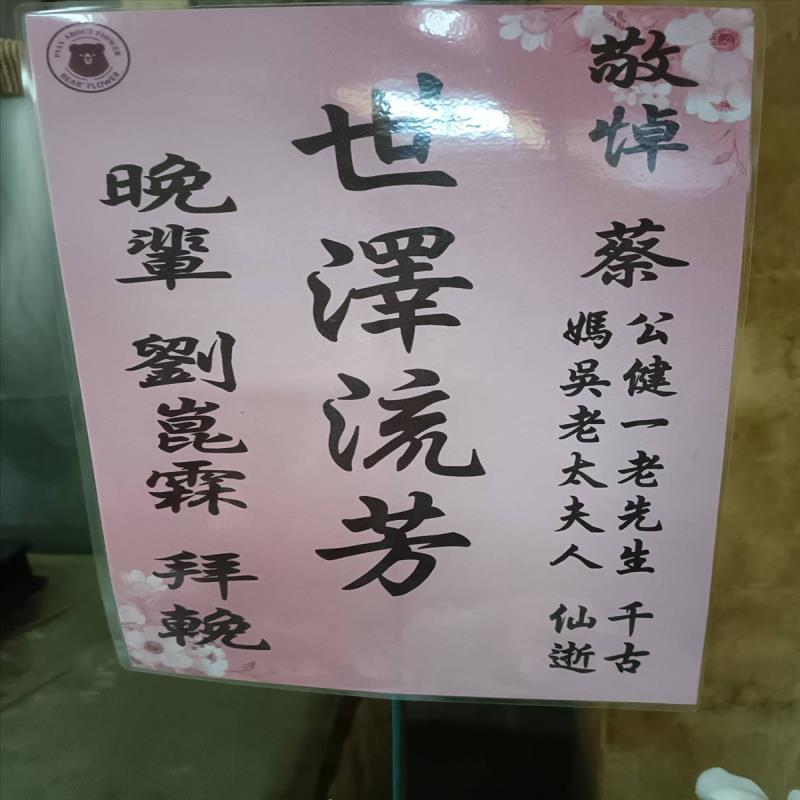 敬悼
蔡
公健一老先生 千古
媽吳老太夫人 仙逝
世澤流芳
晚輩 劉崑霖 拜輓
PLAY ABOUT FLOWER
BEAR' FLOWER